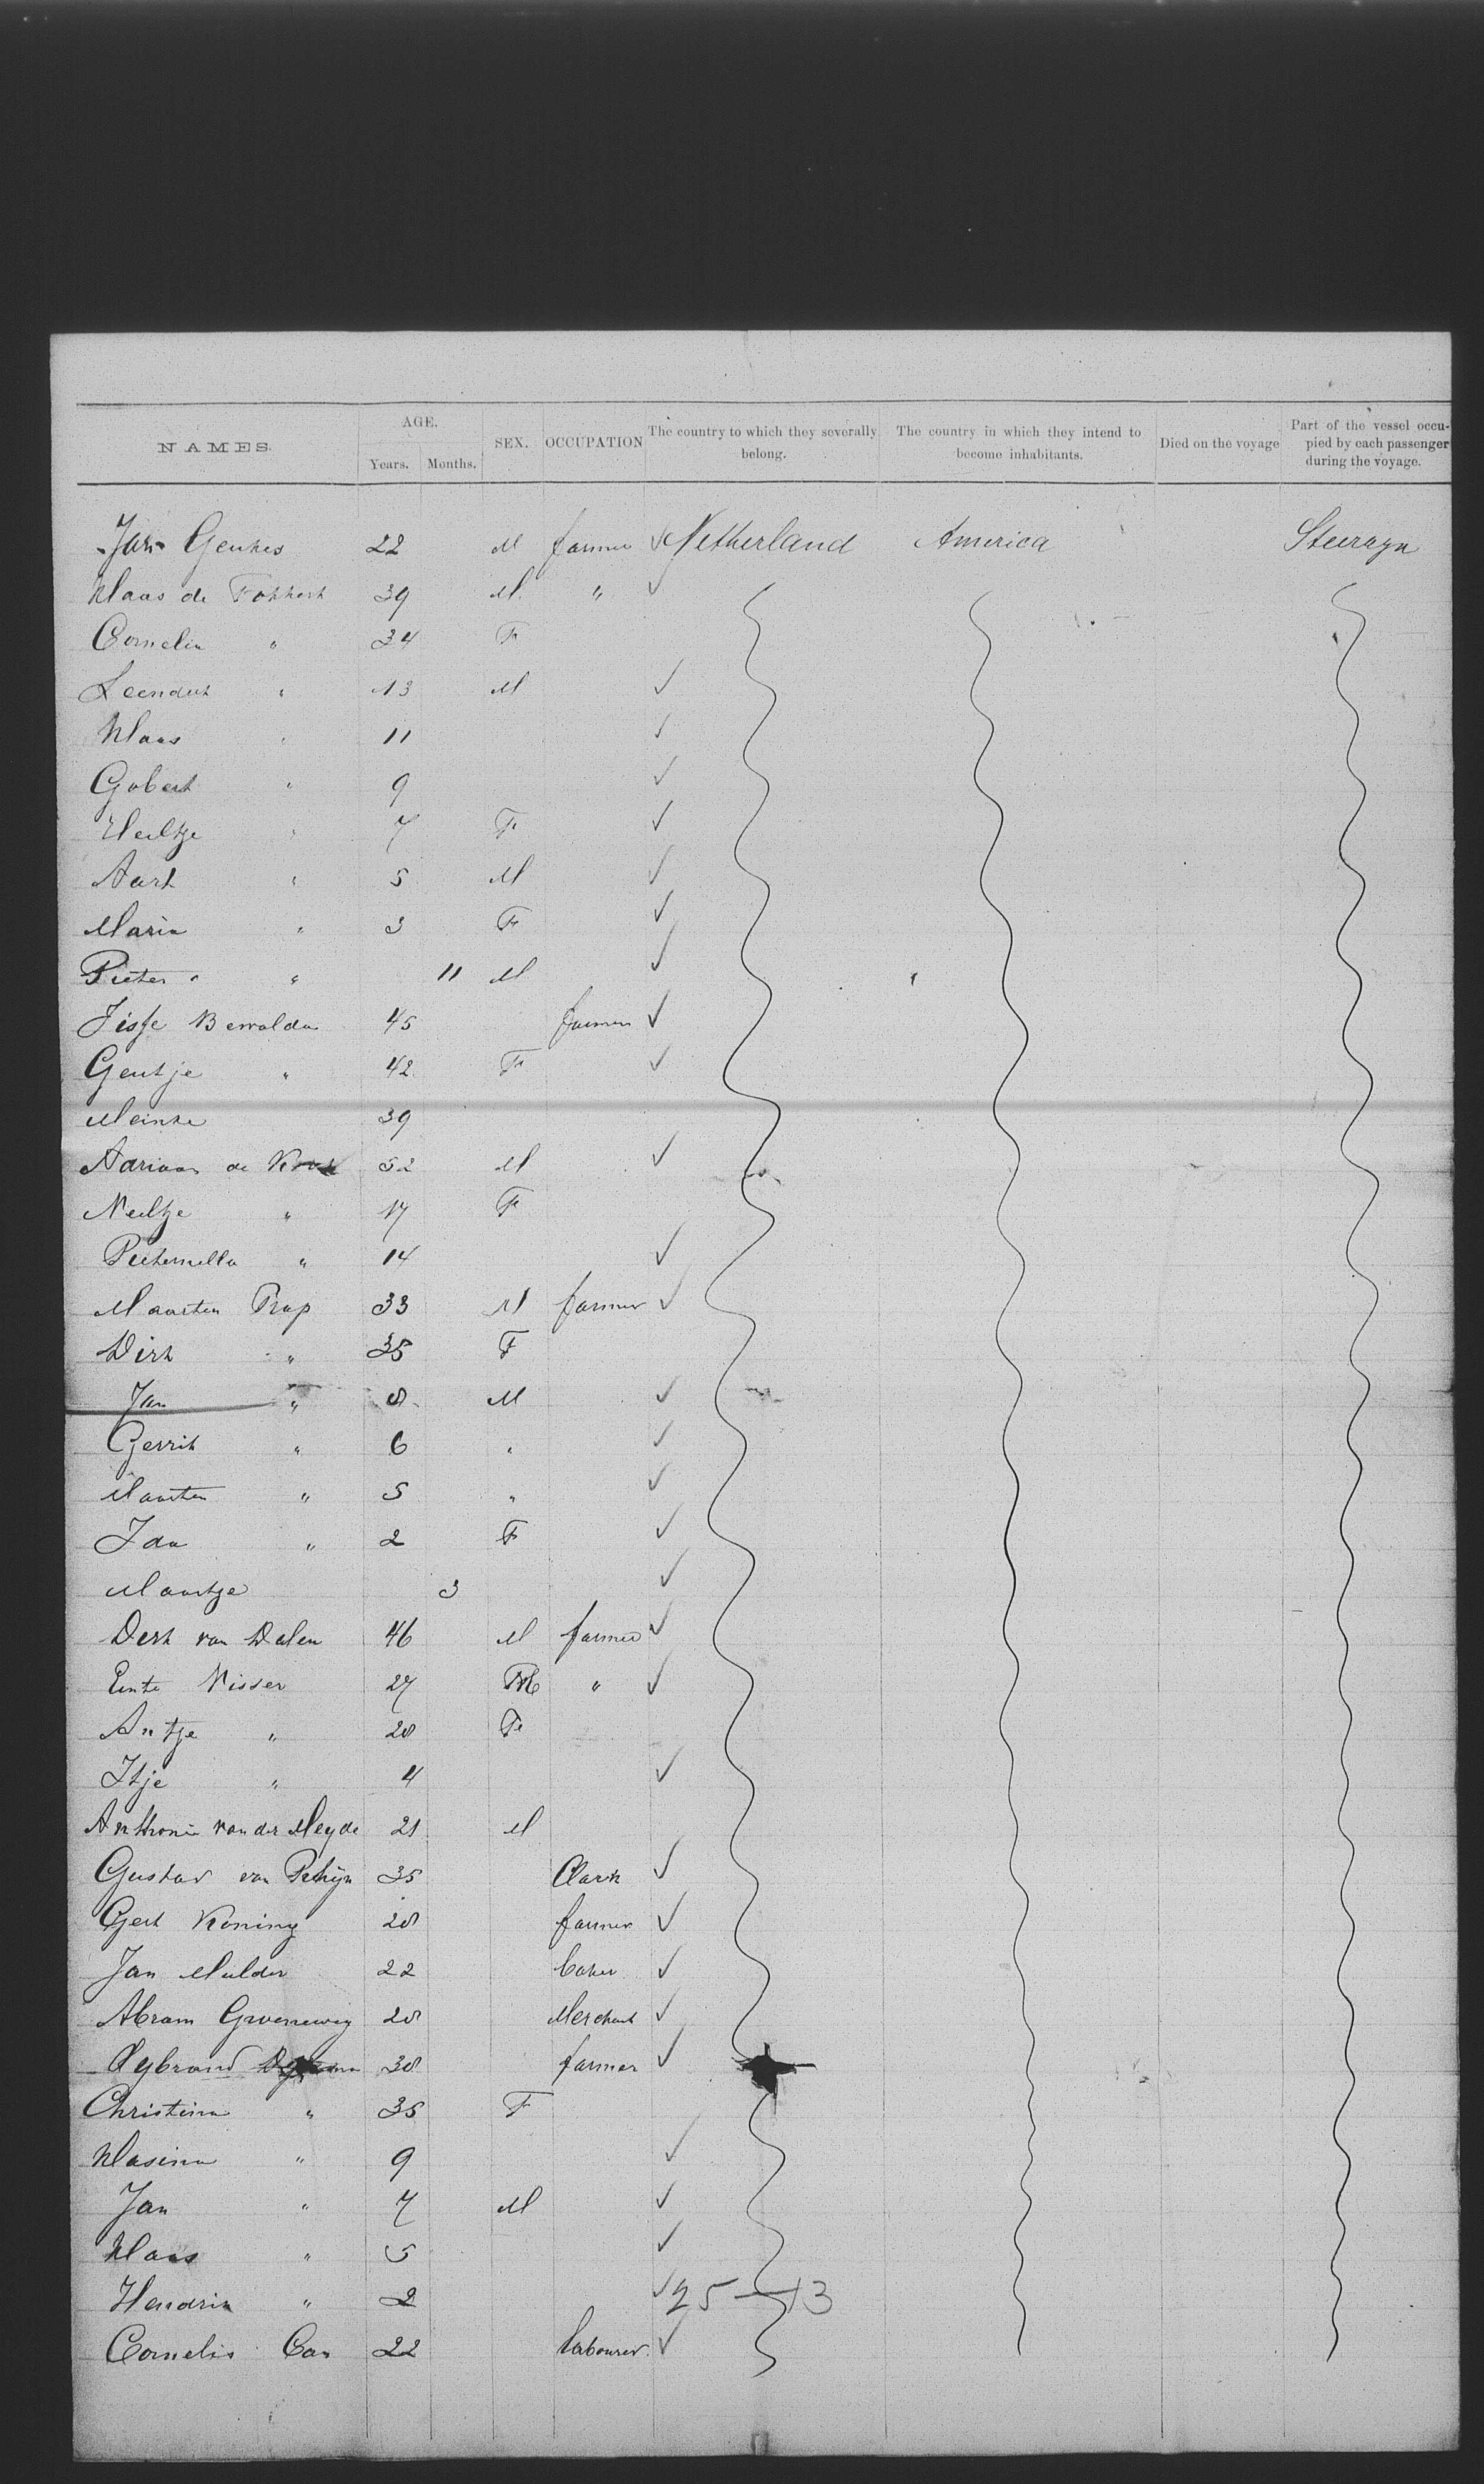 NAMES. AGE. Years. Months. SEX. OCCUPATION The country to which they severally belong. The country in which they intend to become inhabitants. Died on the voyage Part of the vessel occupied by each passenger during the voyage.
Jan Geukes 22 M farmer ✓ Netherland America Steerage
Klaas de Fokkert 39 M. " ✓
Cornelia " 34 F
Leendert " 13 M ✓
Klaas " 11 ✓
Gobert " 9 ✓
Neeltje " 7 F ✓
Aart " 5 M ✓
Maria " 3 F ✓
Pieter " " 11 M ✓
Jisse Bewalda 45 farmer ✓
Geutje " 42 F ✓
Meinke 39
Adriaan de 52 M ✓
Neeltje " 17 F
Pieternella " 14 ✓
Maarten Prap 33 M farmer ✓
Dirk " 35 F
Jan " 8 M ✓
Gerrit " 6 " ✓
Maarten " 5 " ✓
Ida " 2 F ✓
Maartje 3 ✓
Derk van Dalen 46 M farmer ✓
Eente Visser 27 M " ✓
Antje " 28 F
Itje " 4 ✓
Anthonie van der Meyde 21 M
Gustav van 35 Clark ✓
Gert Koning 28 farmer ✓
Jan Mulder 22 baker ✓
Abram Groeneweg 28 Merchant ✓
Sybrand 38 farmer ✓
Christina " 35 F
Klasina " 9 ✓
Jan " 7 M ✓
Klaas " 5 ✓
Hendrik " 2 ✓ 25—13
Cornelis Cas 22 labourer. ✓